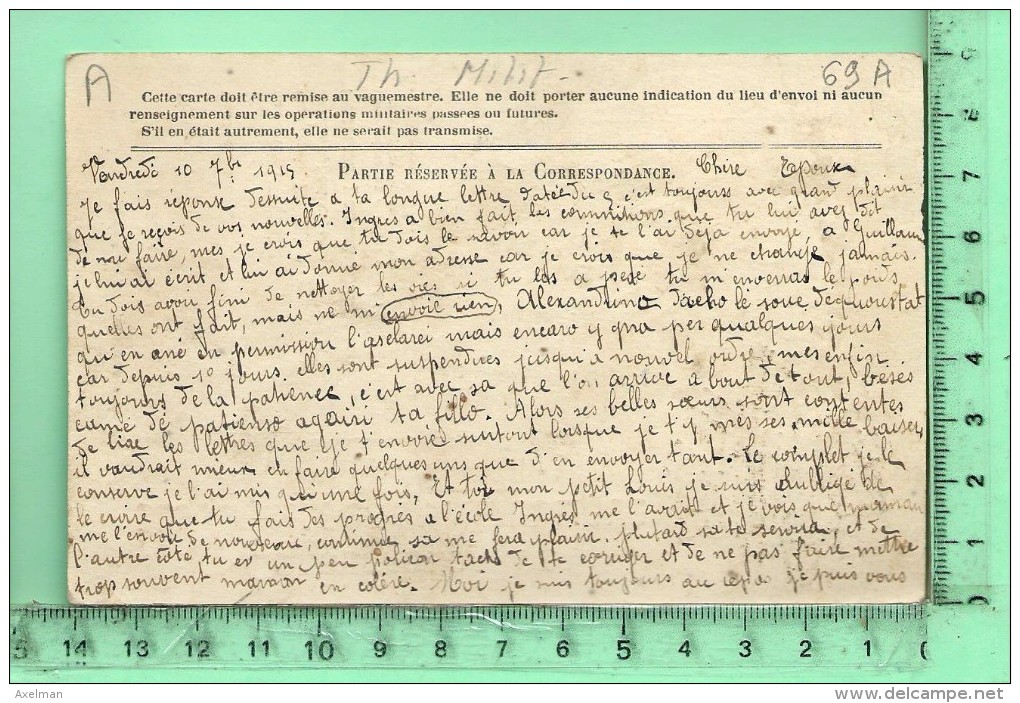 A
Th. Milit.
69 A
Cette carte doit être remise au vaguemestre. Elle ne doit porter aucune indication du lieu d'envoi ni aucun
renseignement sur les opérations militaires passées ou futures.
S'il en était autrement, elle ne serait pas transmise.
Vendredi 10 7bre 1915
PARTIE RÉSERVÉE À LA CORRESPONDANCE.
Chère Epouse
Je fais réponse dessuite a ta longue lettre datée du 5 c'est toujours avec grand plaisir
que je reçois de vos nouvelles. Ingres a bien fait les commitions que tu lui avez dit
de me faire, mes je crois que tu dois le savoir car je te l'ai déjà envoyé, a Guillaum
je lui ai écrit et lui ai donné mon adresse car je crois que je ne change jamais.
tu dois avoir fini de nettoyer les si tu las a pesé tu m'enverras le poids
quelles ont fait, mais ne m'envoie rien, le
qu en en permission mais encaro y gna per qualques jours
car depuis 10 jours elles sont suspendues jusqu'a nouvel ordre, mes enfin
toujours de la patience, c'est avec sa que l'on arrive a bout de tout,
de patienso ta fillo. Alors ses belles sœurs sont contentes
de lire les lettres que je t'envoie surtout lorsque je t'y mes ses mille baisers
il vaudrait mieux en faire quelques uns que d'en envoyer tant. Le complet je le
conserve je l'ai mis qu'une fois, Et toi mon petit Louis je suis oubligé de
le croire que tu fais des progrès a l'école Ingres me l'avait et je vois que maman
me l'envoie de nouveau, continue sa me fera plaisir. plutard sa te servira, et de
l'autre côté tu es un peu polisson tache de te corriger et de ne pas faire mettre
trop souvent maman en colère. Moi je suis toujours au repos je puis vous
15 14 13 12 11 10 9 8 7 6 5 4 3 2 1 0
9 8 7 6 5 4 3 2 1 0
Axelman
www.delcampe.net